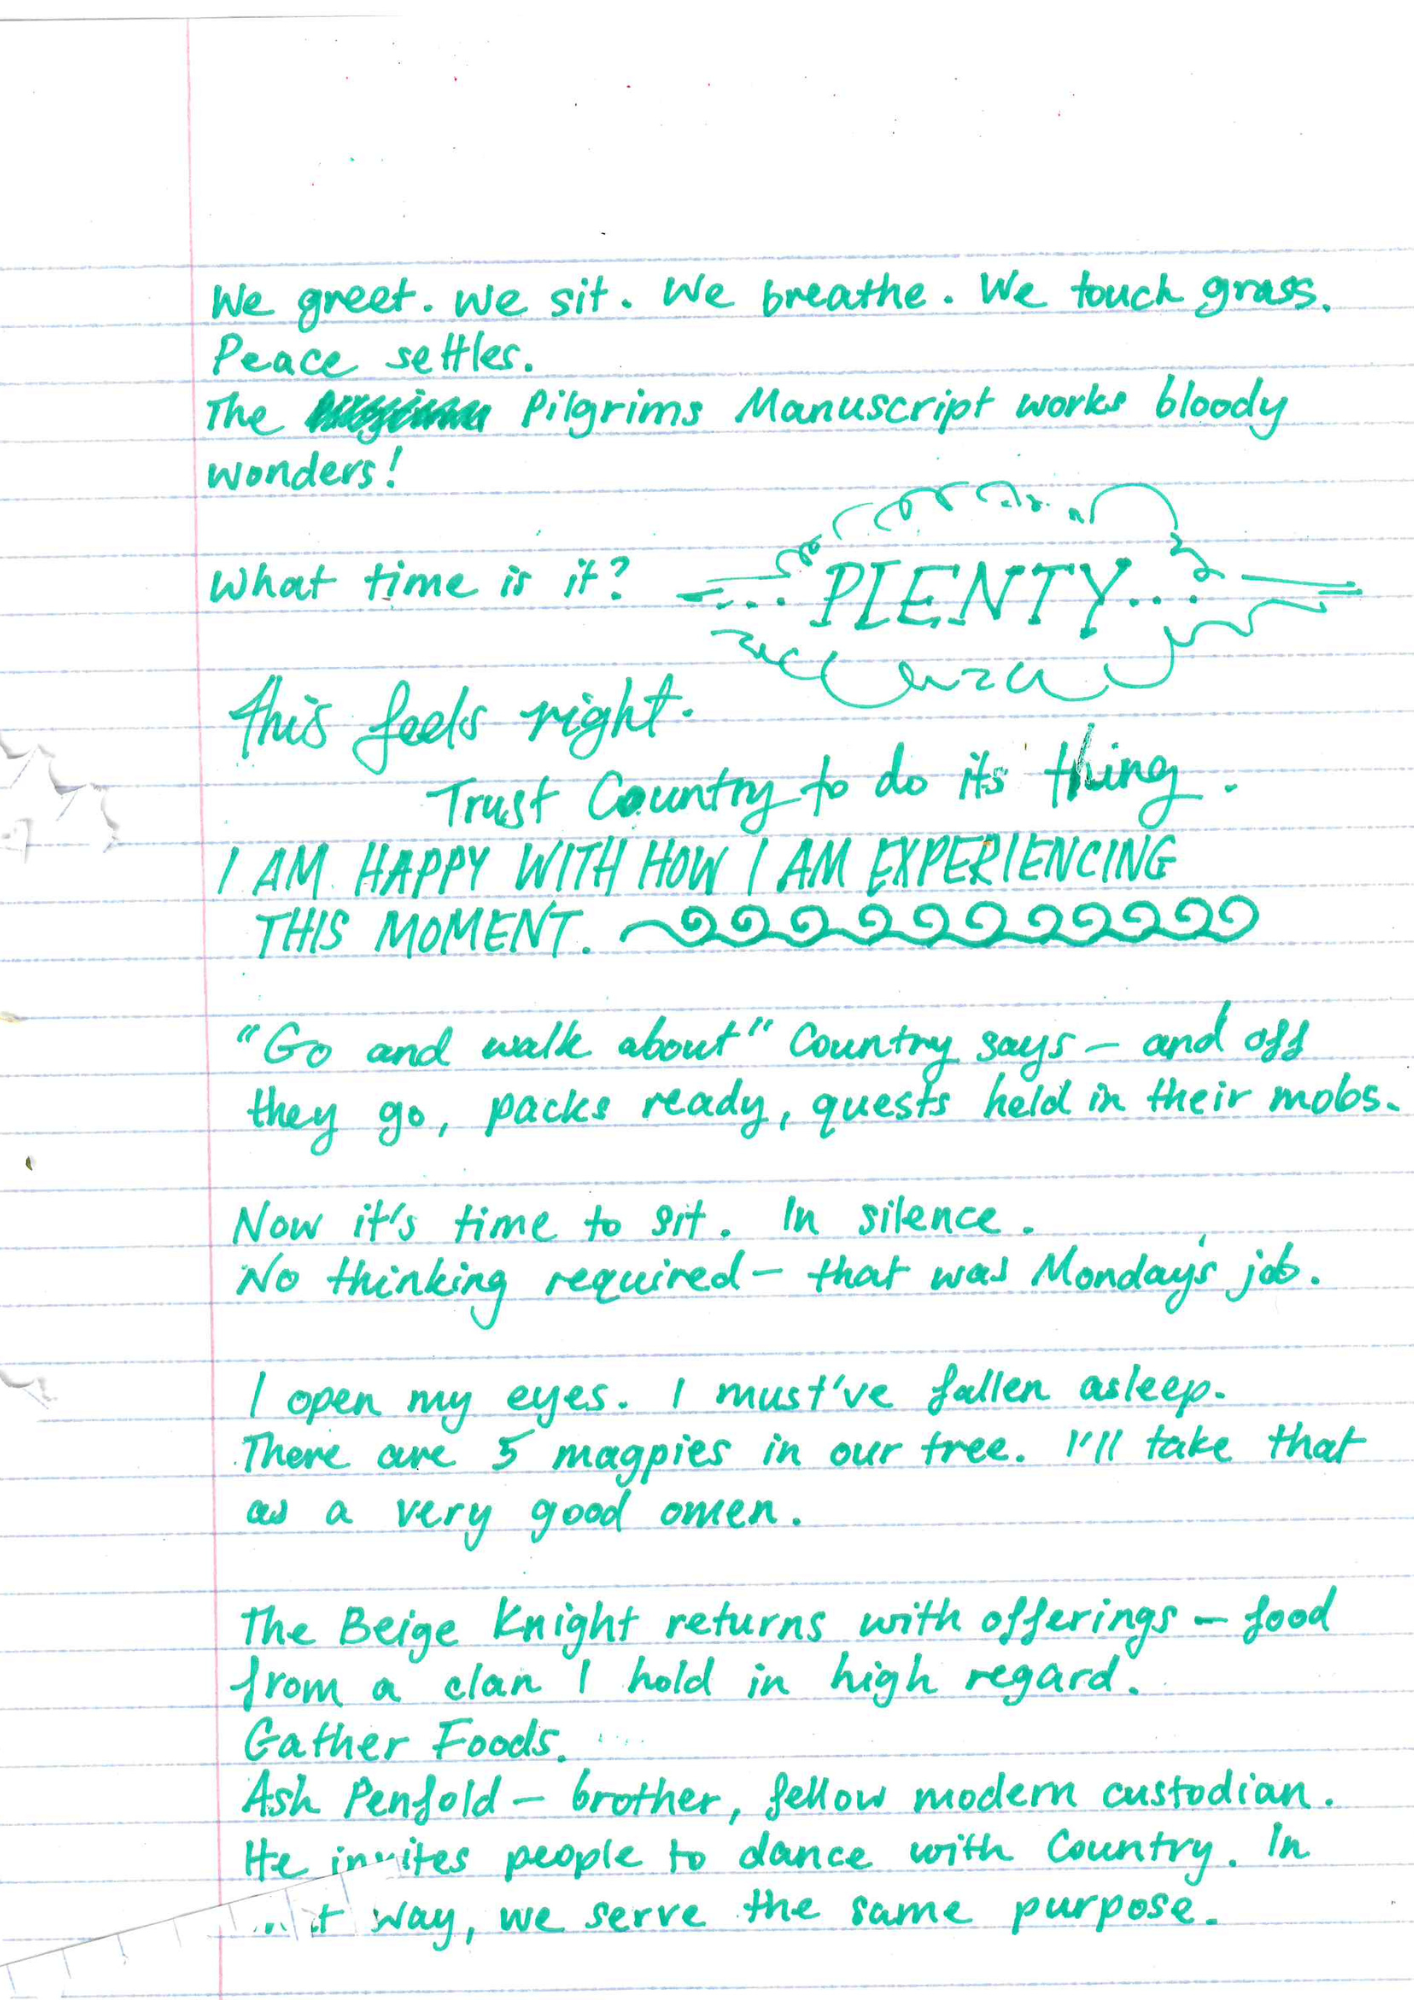 We greet. We sit. We breathe. We touch grass.
Peace settles.
The Pilgrims Manuscript works bloody
wonders!
What time is it? ... PLENTY...
this feels right.
Trust Country to do its thing.
I AM HAPPY WITH HOW I AM EXPERIENCING
THIS MOMENT.
"Go and walk about" Country says – and off
they go, packs ready, quests held in their mobs.
Now it's time to sit. In silence.
No thinking required – that was Monday's job.
I open my eyes. I must've fallen asleep.
There are 5 magpies in our tree. I'll take that
as a very good omen.
The Beige Knight returns with offerings – food
from a clan I hold in high regard.
Gather Foods.
Ash Penfold – brother, fellow modern custodian.
He invites people to dance with Country. In
way, we serve the same purpose.